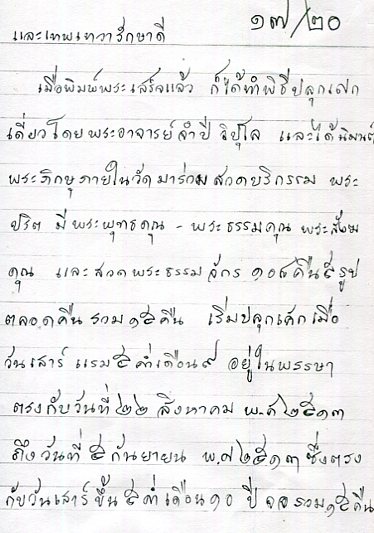 ๑๗/๒๐
และเทพเทวารักษาดี
เมื่อพิมพ์พระเสร็จแล้ว ก็ได้ทำพิธีปลุกเสก
เดี่ยวโดยพระอาจารย์จำปี วิปุโล และได้นิมนต์
พระภิกษุภายในวัดมาร่วมสวดบริกรรม พระ
ปริต มี พระพุทธคุณ - พระธรรมคุณ พระสังฆ
คุณ และสวดพระธรรมจักร ๑๐๘ คืน ๕ รูป
ตลอดคืน รวม ๑๕ คืน เริ่มปลุกเสกเมื่อ
วันเสาร์ แรม ๕ ค่ำเดือน ๙ อยู่ในพรรษา
ตรงกับวันที่ ๒๒ สิงหาคม พ.ศ ๒๕๑๓
ถึง วันที่ ๕ กันยายน พ.ศ ๒๕๑๓ ซึ่งตรง
กับวันเสาร์ ขึ้น ๕ ค่ำเดือน ๑๐ ปี จอ รวม ๑๕ คืน